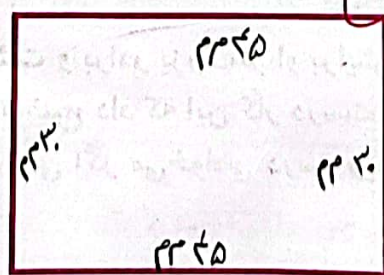 ۴۵ مم
۳۰ مم
۳۰ مم
۴۵ مم